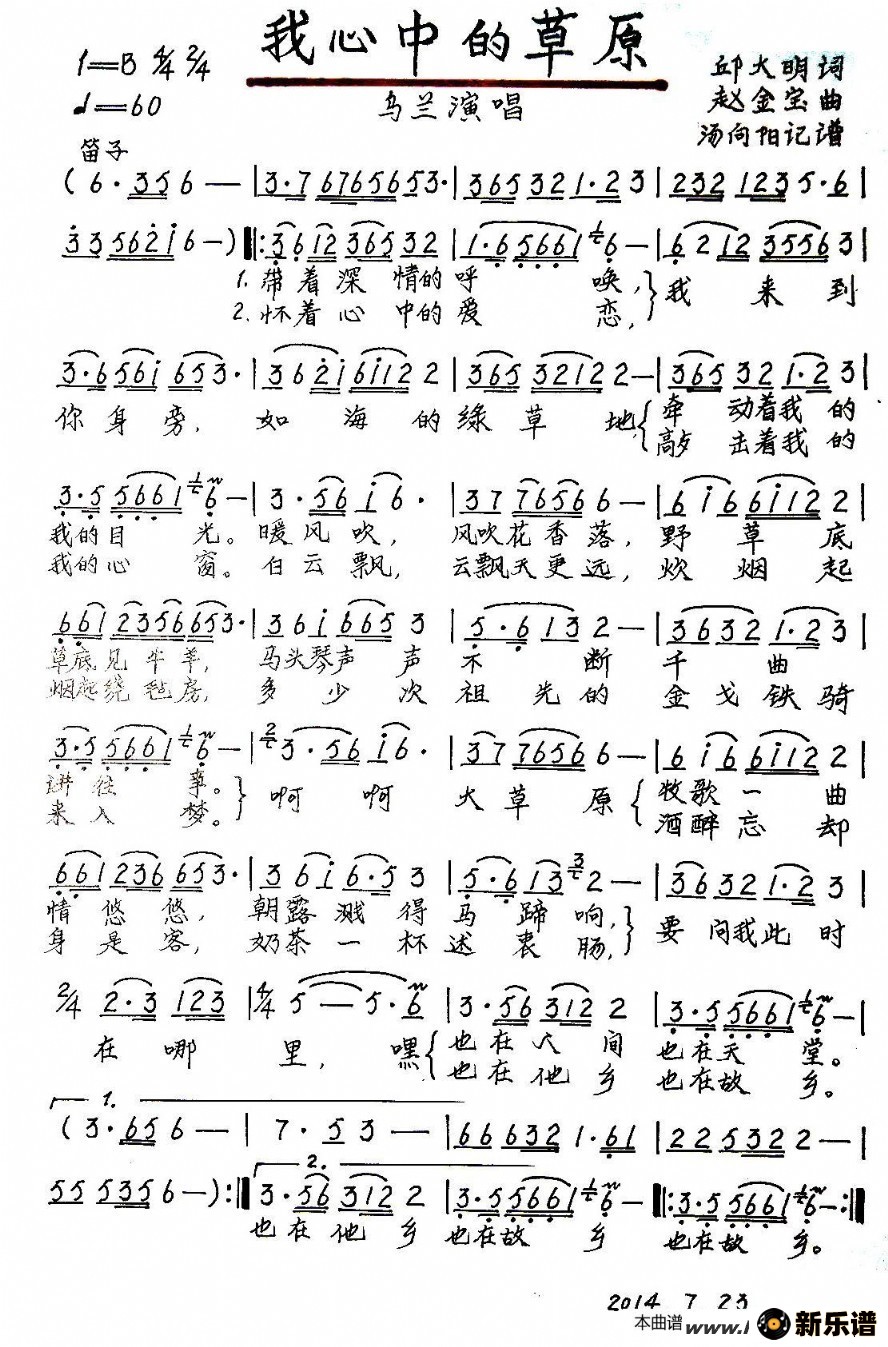 我心中的草原
1=B 4/4 2/4
♩=60
乌兰演唱
邱大明词
赵金宝曲
汤向阳记谱
笛子
(6·356— |3·76765653·|365321·23|2321235·6|
33562i6—)‖:361236532|1·65661 6—|621235563|
1.带着深情的呼唤,}我来到
2.怀着心中的爱恋,
3·6561653·|362i6i122|36532122—|365321·23|
你身旁,如海的绿草地{牵动着我的
敲击着我的
3·55661 6—|3·56i6·|3776566—|6i66i122|
我的目光。暖风吹,风吹花香落,野草底
我的心窗。白云飘,云飘天更远,炊烟起
6612356653·|36i6653|5·6132—|36321·23|
草底见牛羊,马头琴声声不断千曲
烟起绕毡房,多少次祖先的金戈铁骑
3·55661 6—|3·56i6·|3776566—|6i66i122|
讲往事。}啊啊大草原{牧歌一曲
来入梦。酒醉忘却
661236653·|36i6·53|5·613 2—|36321·23|
情悠悠,朝露溅得马蹄响,}要问我此时
身是客,奶茶一杯述衷肠,
2/4 2·3 123|4/4 5—5·6|3·563122|3·55661 6—|
在哪里,嘿{也在人间也在天堂。
也在他乡也在故乡。
1.
(3·656—|7·53—|666321·61|225322—|
2.
555356—):‖3·563122|3·55661 6—‖:3·55661 6—:‖
也在他乡也在故乡也在故乡。
2014 7 23
本曲谱 www.
新乐谱